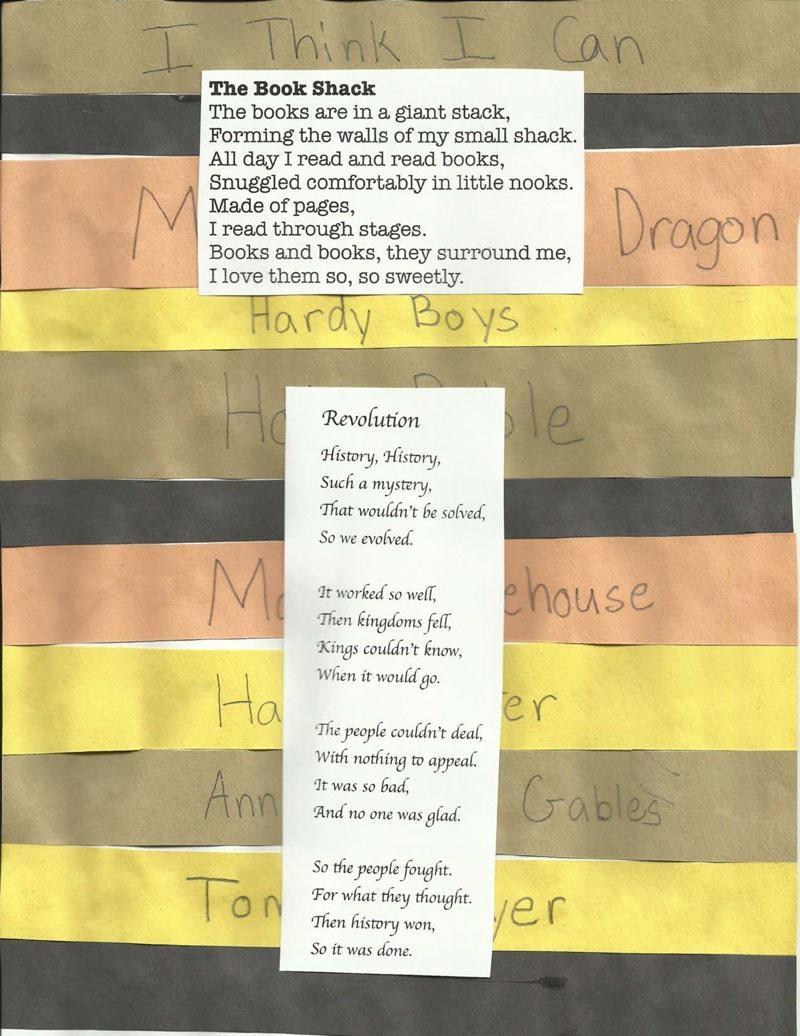 I Think I Can
The Book Shack
The books are in a giant stack,
Forming the walls of my small shack.
All day I read and read books,
Snuggled comfortably in little nooks.
Made of pages,
I read through stages.
Books and books, they surround me,
I love them so, so sweetly.
Dragon
Hardy Boys
Revolution
History, History,
Such a mystery,
That wouldn't be solved,
So we evolved.
It worked so well,
Then kingdoms fell,
Kings couldn't know,
When it would go.
The people couldn't deal,
With nothing to appeal.
It was so bad,
And no one was glad.
So the people fought.
For what they thought.
Then history won,
So it was done.
Gables